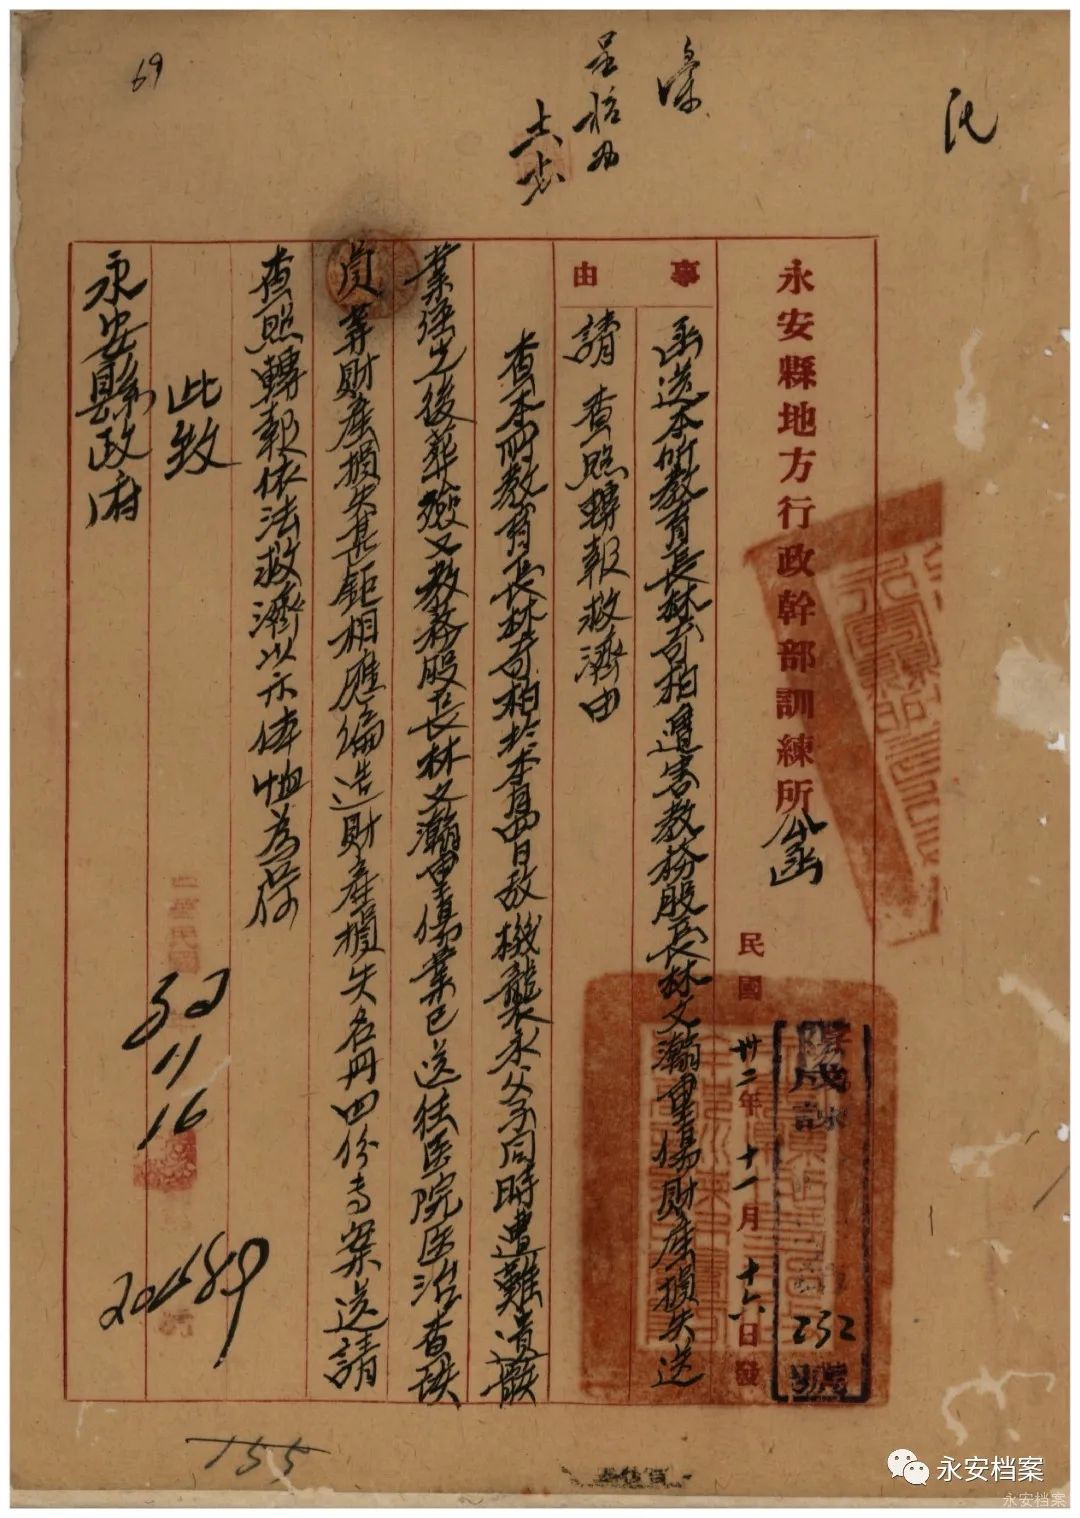 69
永安縣地方行政幹部訓練所公函
民國卅二年十一月十六日發
232
號
事由
函送本所教育長林奇柏遭害教務股長林文瀚重傷財產損失送
請查照轉報救濟由
查本所教育長林奇柏於本月四日敵機襲永父子同時遭難遺骸
業經先後葬殮又教務股長林文瀚重傷業已送往医院医治查該
員等財產損失甚鉅相應編造財產損失名冊四份專案送請
查照轉報依法救濟以示体恤為荷
此致
永安縣政府
32
11
16
155
永安档案
永安档案